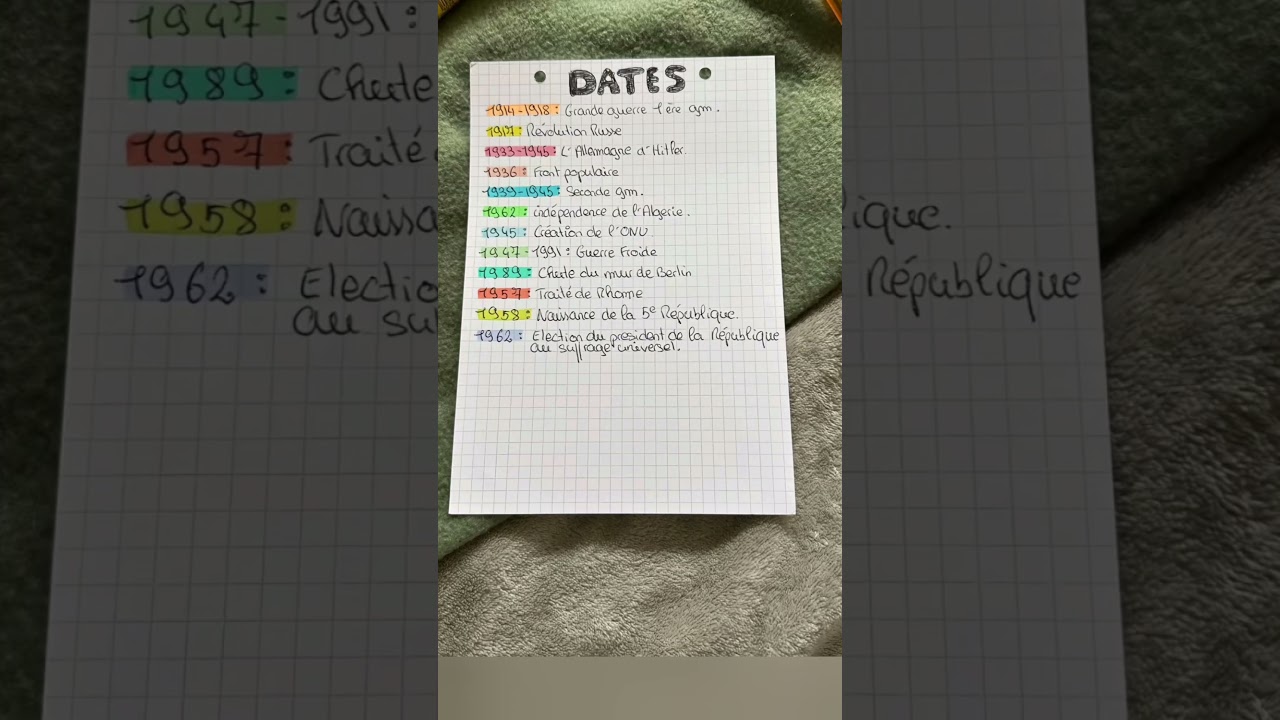 DATES
1914-1918 : Grande guerre 1ère gm.
1917 : Révolution Russe
1933-1945 : L'Allemagne d'Hitler.
1936 : Front populaire
1939-1945 : Seconde gm.
1962 : indépendence de l'Algerie.
1945 : Création de l'ONU
1947-1991 : Guerre Froide
1989 : Chute du mur de Berlin
1957 : Traité de Rhome
1958 : Naissance de la 5e République.
1962 : Election du president de la République
au suffrage universel.
1947-1991 :
1989 : Chute
1957 : Traité
1958 : Naissa
ique.
1962 : Electio
République
au su